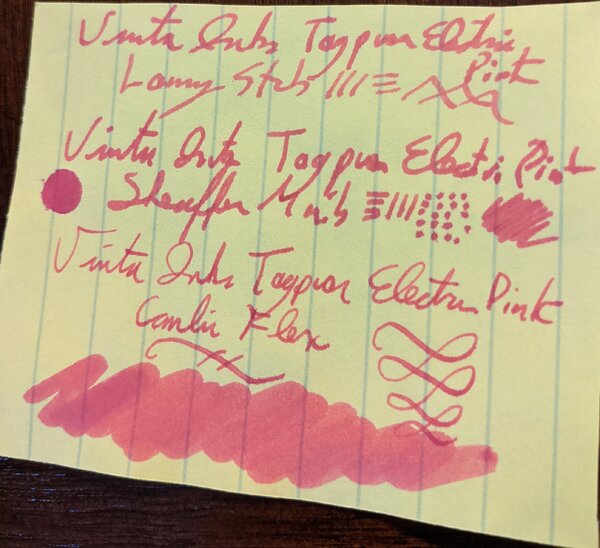 Vinta Inks Tagpuan Electric
Pink
Lamy Stub
Vinta Inks Tagpuan Electric Pink
Sheaffer M nib
Vinta Inks Tagpuan Electric Pink
Conklin Flex